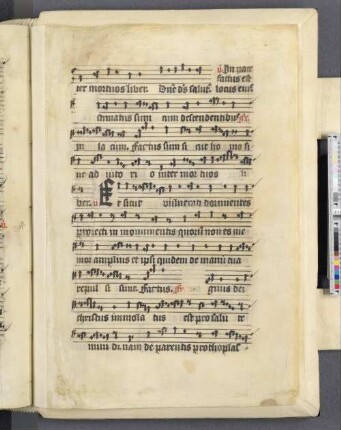 ℣. In pace
factus est
ter mortuos liber. Dne ds salut locus eius
estimatus sum cum descendentibus
in la cum. Factus sum si cut ho mo si
ne ad iuto ri o inter mor tuos li
ber. ℣ Et sicut vulnerati dormientes
proiecti in monumentis quorum non es me
mor amplius et ipsi quidem de manu tua
repul si sunt. Factus. ℟. gnus dei
christus immola tus est pro salu te
mun di. nam de parentis prothoplas